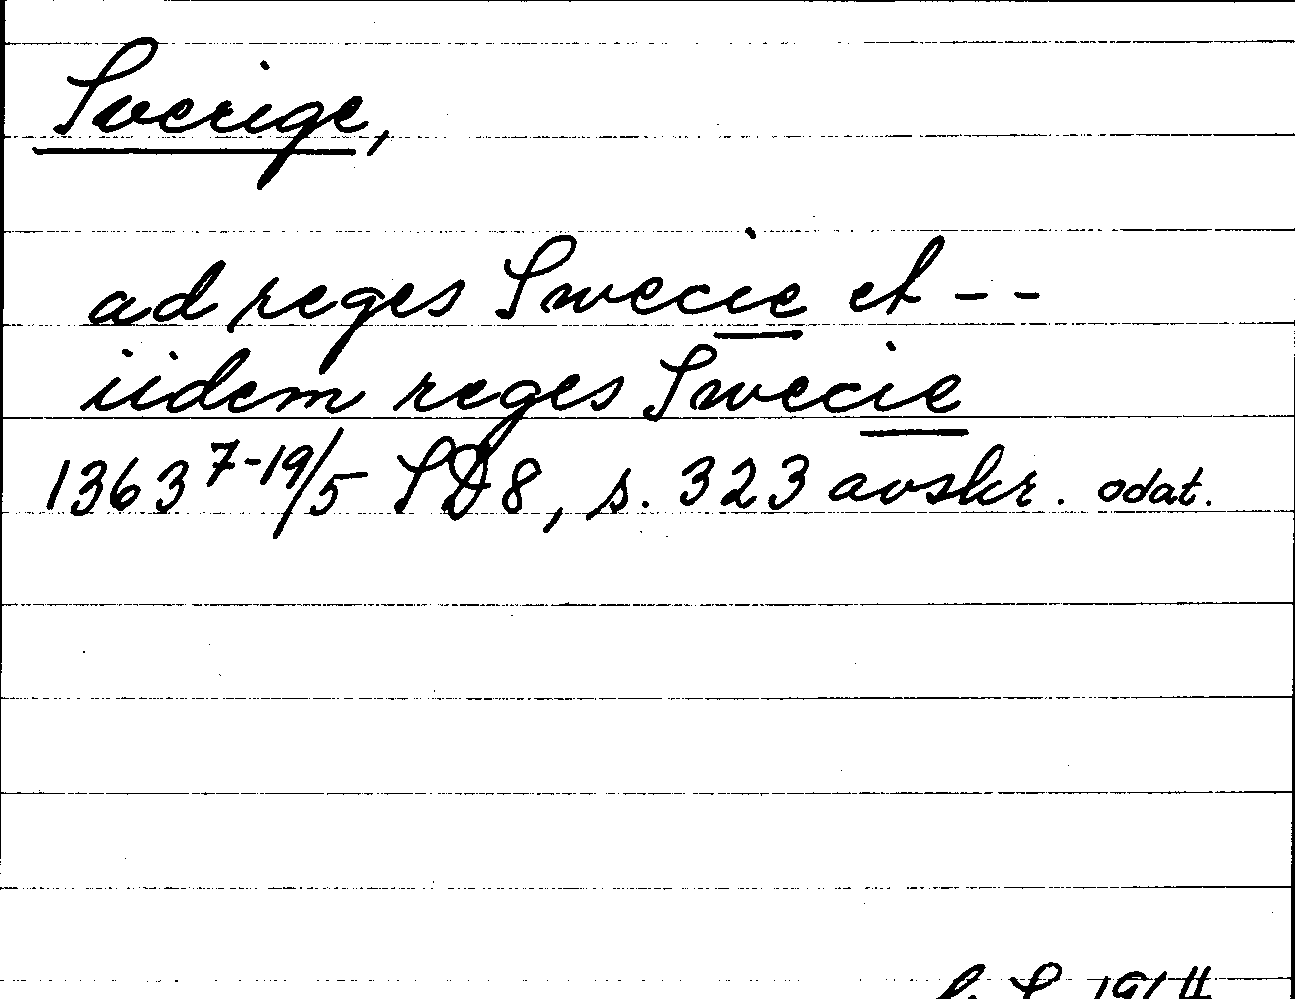 Sverige,
ad reges Swecie et --
iidem reges Swecie
1363 7-19/5 SD8, s. 323 avskr. odat.